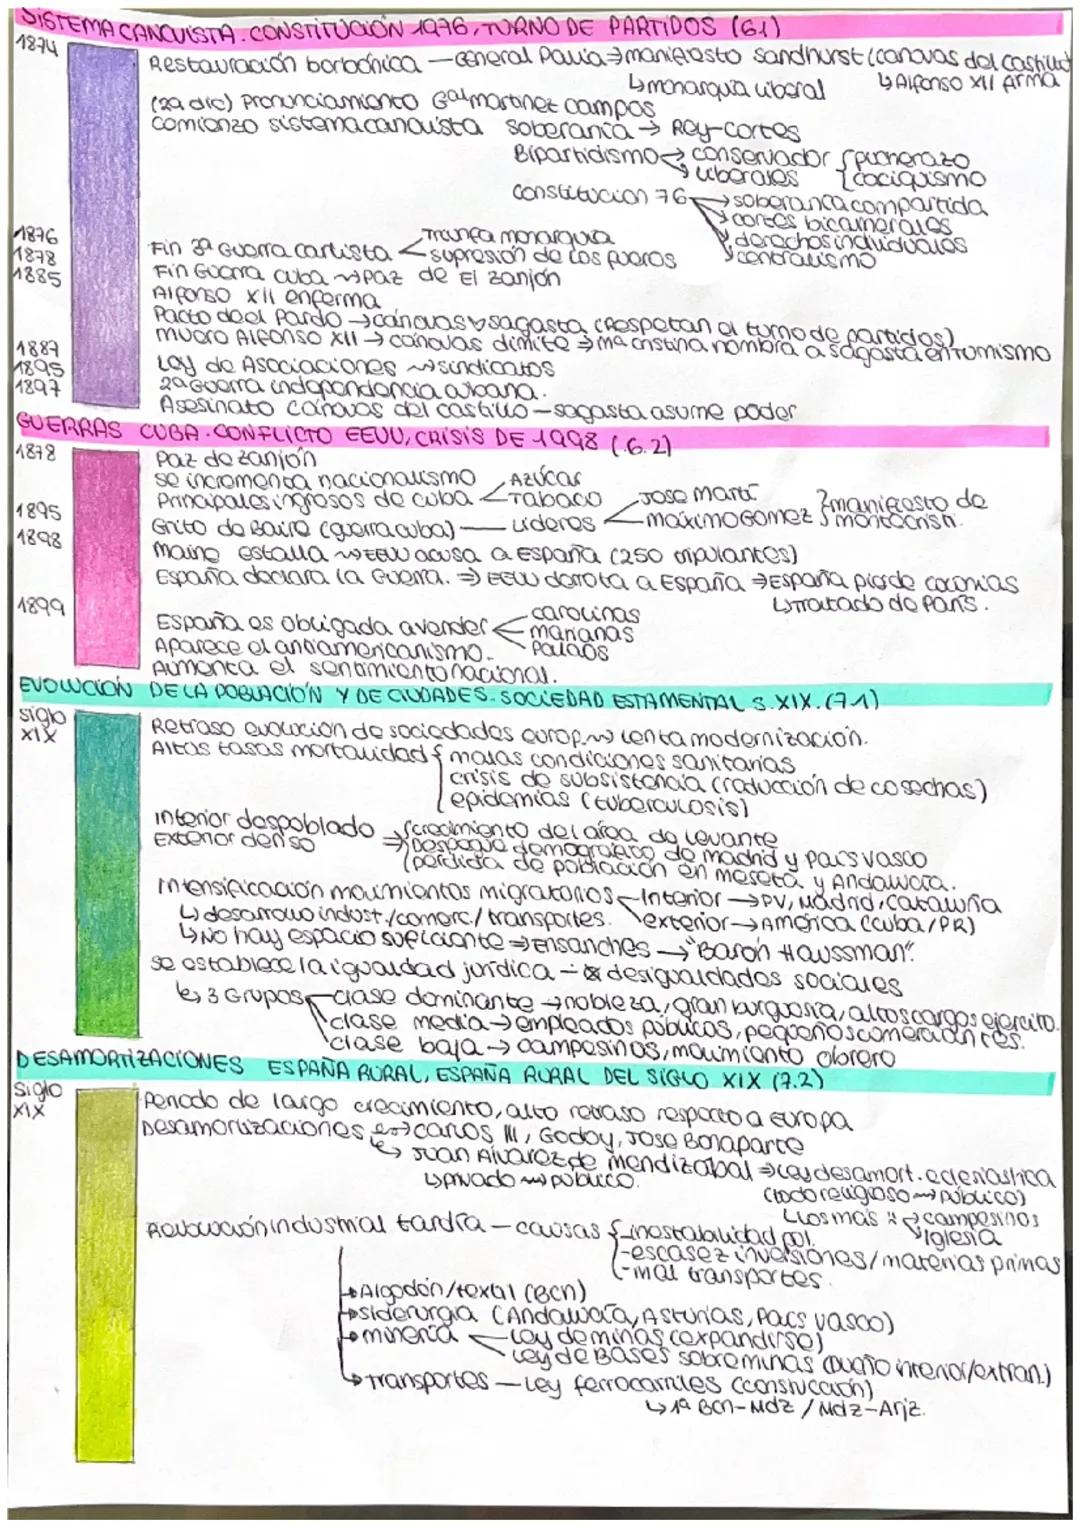 SISTEMA CANOVISTA. CONSTITUCIÓN 1976, TURNO DE PARTIDOS (6.1)
1874
Restauración borbónica — General Pavia → manifiesto Sandhurst (canovas del castillo)
↳ monarquía liberal ↳ Alfonso XII firma
(29 dic) Pronunciamiento Gal martinez campos
comienzo sistema canovista soberanía → Rey-cortes
Bipartidismo conservador pucherazo
liberales caciquismo
constitucion 76 soberanía compartida
cortes bicamerales
1876 Triunfa monarquía derechos individuales
1878 Fin 3ª Guerra carlista supresión de los fueros centralismo
1885 Fin Guerra cuba ⇝ Paz de El zanjón
Alfonso XII enferma
Pacto deel Pardo → cánovas y sagasta (Respetan el turno de partidos)
muere Alfonso XII → canovas dimite ⇒ Mª cristina nombra a sagasta en turnismo
1887 Ley de Asociaciones ⇝ sindicatos
1895 2ª Guerra independencia cubana.
1897 Asesinato cánovas del castillo — sagasta asume poder
GUERRAS CUBA. CONFLICTO EEUU, CRISIS DE 1998 (6.2)
1878 Paz de zanjón
se incrementa nacionalismo Azúcar
Principales ingresos de cuba Tabaco José Martí manifiesto de
1895 Grito de Baire (guerra cuba) — Líderes máximo Gomez montecristi.
1898 Maine estalla ⇝ EEUU acusa a España (250 tripulantes)
España declara la Guerra. ⇒ EEUU derrota a España ⇒ España pierde colonias
↳ Tratado de París.
1899 España es obligada a vender carolinas
marianas
Palaos
Aparece el antiamericanismo.
Aumenta el sentimiento nacional.
EVOLUCIÓN DE LA POBLACIÓN Y DE CIUDADES. SOCIEDAD ESTAMENTAL S.XIX. (7.1)
siglo XIX
Retraso evolución de sociedades europ. ⇝ lenta modernización.
Altas tasas mortalidad malas condiciones sanitarias
crisis de subsistencia (reducción de cosechas)
epidemias (tuberculosis)
Interior despoblado crecimiento del área de Levante
Exterior denso ⇒ Despegue demográfico de madrid y País vasco
pérdida de población en meseta y Andalucía.
Intensificación movimientos migratorios Interior → PV, Madrid, Cataluña
↳ desarrollo indust./comerc./transportes. exterior → América (cuba/PR)
↳ No hay espacio suficiente ⇒ Ensanches → "Barón Haussman".
se establece la igualdad jurídica — desigualdades sociales
↳ 3 Grupos clase dominante → nobleza, gran burguesía, altos cargos ejército.
clase media → empleados públicos, pequeños comerciantes.
clase baja → campesinos, movimiento obrero
DESAMORTIZACIONES ESPAÑA RURAL, ESPAÑA RURAL DEL SIGLO XIX (7.2)
siglo XIX
Periodo de largo crecimiento, alto retraso respecto a Europa
Desamortizaciones Carlos III, Godoy, José Bonaparte
↳ Juan Álvarez de Mendizábal ⇒ Ley desamort. eclesiástica
↳ privado ⇝ público. (todo religioso ⇝ público)
↳ Los más campesinos
Iglesia
Revolución industrial tardía — causas - inestabilidad pol.
- escasez inversiones/materias primas
- mal transportes.
→ Algodón/textil (BCN)
→ siderurgia (Andalucía, Asturias, País vasco)
→ minería Ley de minas (expandirse)
Ley de Bases sobre minas (Dueño interior/extran.)
→ Transportes — Ley ferrocarriles (construcción)
↳ 1º BCN-Mdz / Mdz-Arjz.